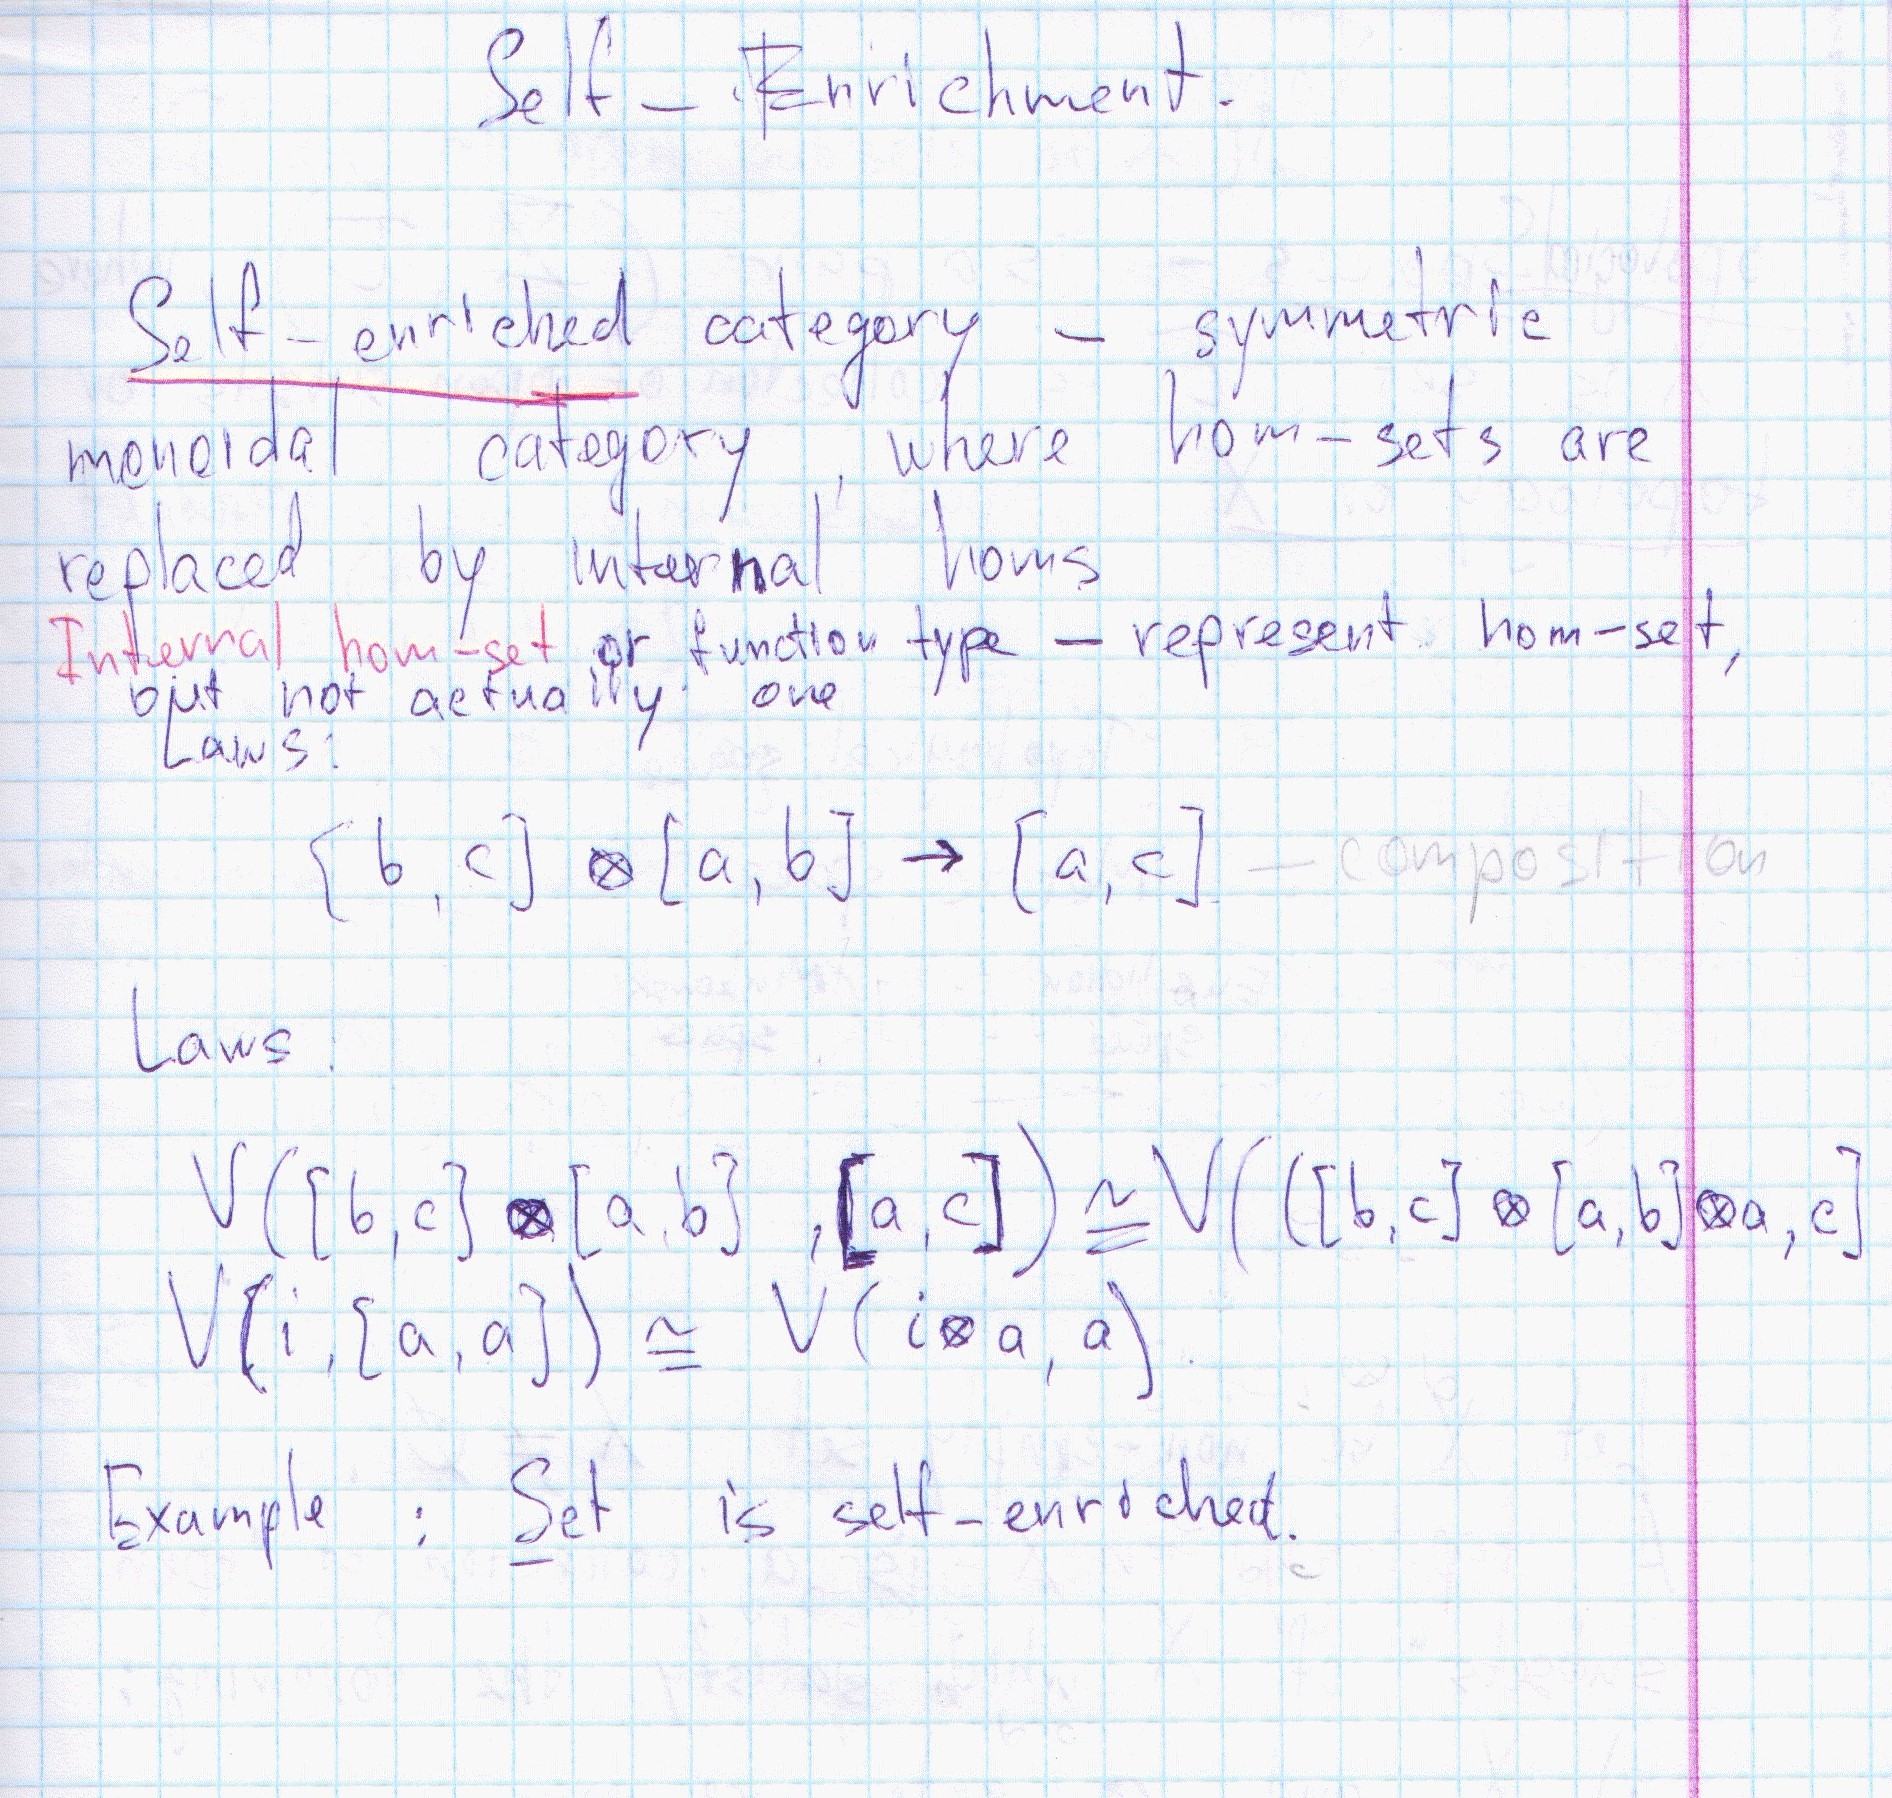 Self - Enrichment.
Self-enriched category - symmetric
monoidal category, where hom-sets are
replaced by internal homs
Internal hom-set or function type - represent hom-set,
but not actually one
Laws:
[b, c] ⊗ [a, b] → [a, c] - composition
Laws:
V([b, c] ⊗ [a, b], [a, c]) ≅ V(([b, c] ⊗ [a, b] ⊗ a, c]
V(i, [a, a]) ≅ V(i ⊗ a, a).
Example: Set is self-enriched.